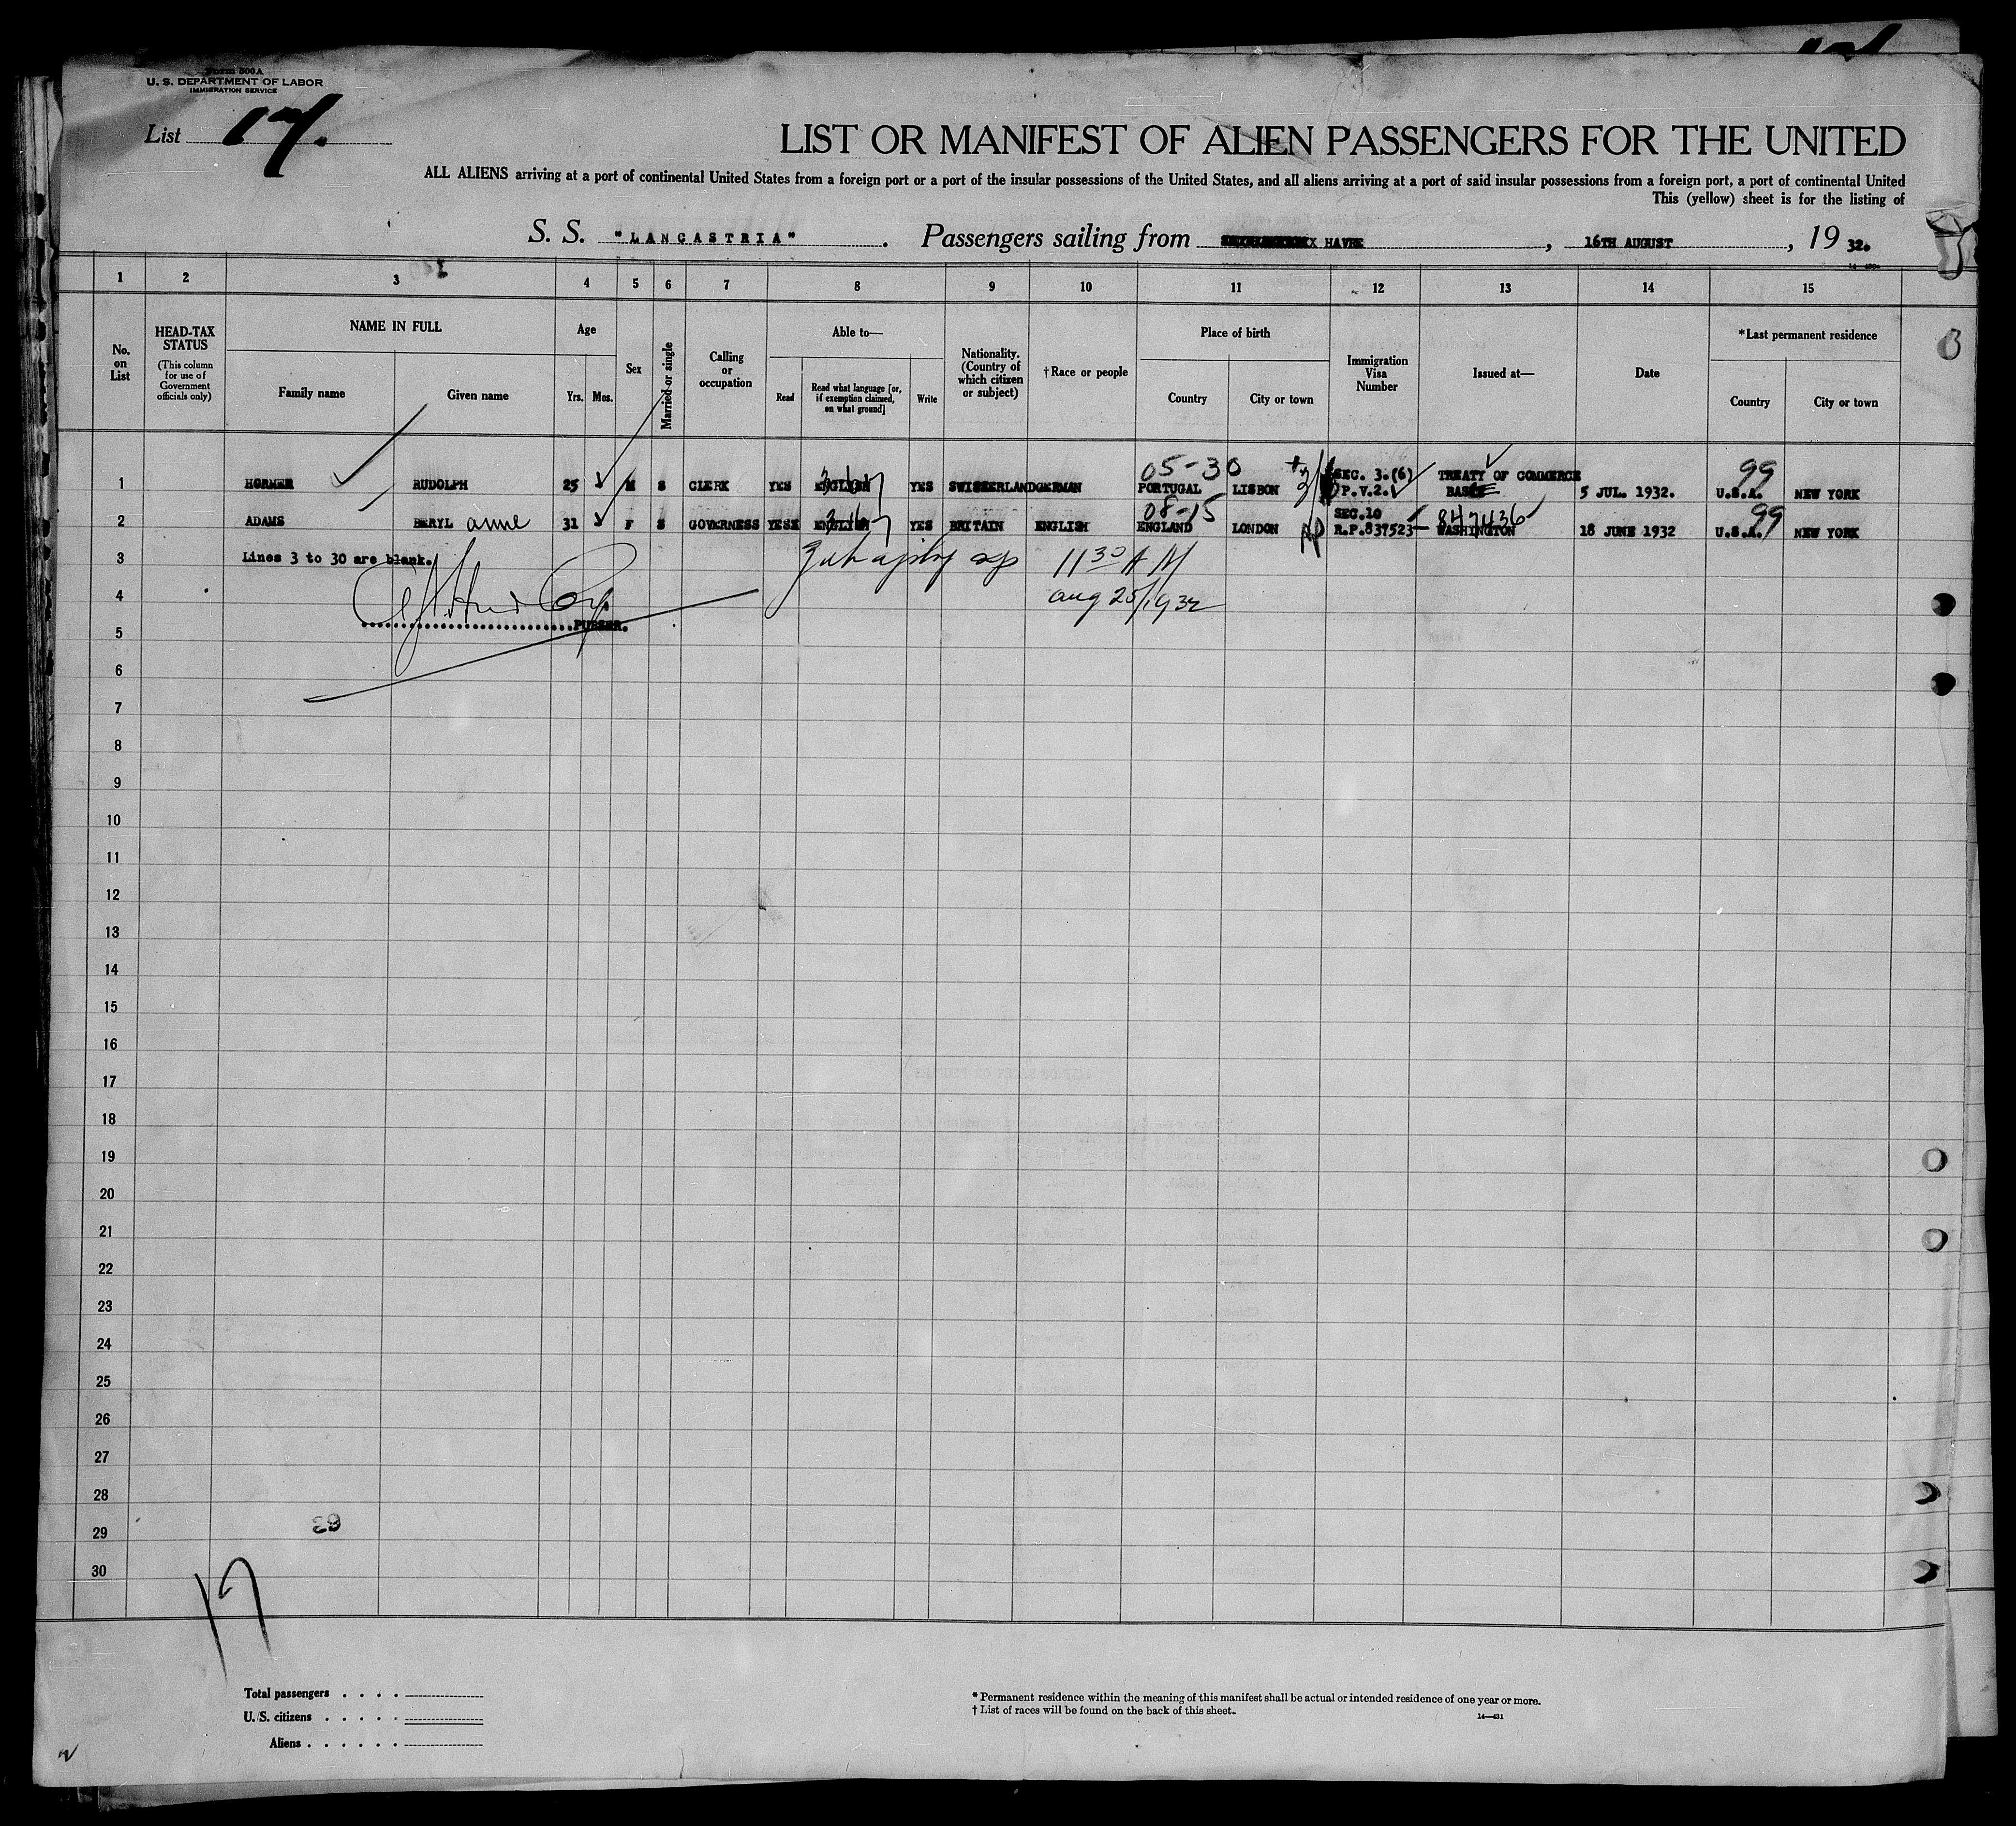 Form 500A
U. S. DEPARTMENT OF LABOR
IMMIGRATION SERVICE
List 17.
LIST OR MANIFEST OF ALIEN PASSENGERS FOR THE UNITED
ALL ALIENS arriving at a port of continental United States from a foreign port or a port of the insular possessions of the United States, and all aliens arriving at a port of said insular possessions from a foreign port, a port of continental United
This (yellow) sheet is for the listing of
S. S. "LANCASTRIA". Passengers sailing from HAVRE, 16TH AUGUST, 19 32.
1 2 3 4 5 6 7 8 9 10 11 12 13 14 15
No. on List
HEAD-TAX STATUS
(This column for use of Government officials only)
NAME IN FULL
Family name Given name
Age
Yrs. Mos.
Sex
Married or single
Calling or occupation
Able to—
Read
Read what language [or, if exemption claimed, on what ground]
Write
Nationality. (Country of which citizen or subject)
† Race or people
Place of birth
Country City or town
Immigration Visa Number
Issued at—
Date
*Last permanent residence
Country City or town
05-30 99
1 HORMER RUDOLPH 25 M S CLERK YES ENGLISH YES SWITZERLAND GERMAN PORTUGAL LISBON SEC. 3.(6) P.V.2. TREATY OF COMMERCE BASLE 5 JUL. 1932. U.S.A. NEW YORK
08-15 847436 99
2 ADAMS BERYL anne 31 F S GOVERNESS YES ENGLISH YES BRITAIN ENGLISH ENGLAND LONDON SEC.10 R.P.837523 WASHINGTON 18 JUNE 1932 U.S.A. NEW YORK
3 Lines 3 to 30 are blank. 11 30 A M
4 aug 25/1932
PURSER.
5
6
7
8
9
10
11
12
13
14
15
16
17
18
19
20
21
22
23
24
25
26
27
28
29
30
63
17
Total passengers . . . .
U. S. citizens . . . . .
Aliens . . . . . .
* Permanent residence within the meaning of this manifest shall be actual or intended residence of one year or more.
† List of races will be found on the back of this sheet.
14—431